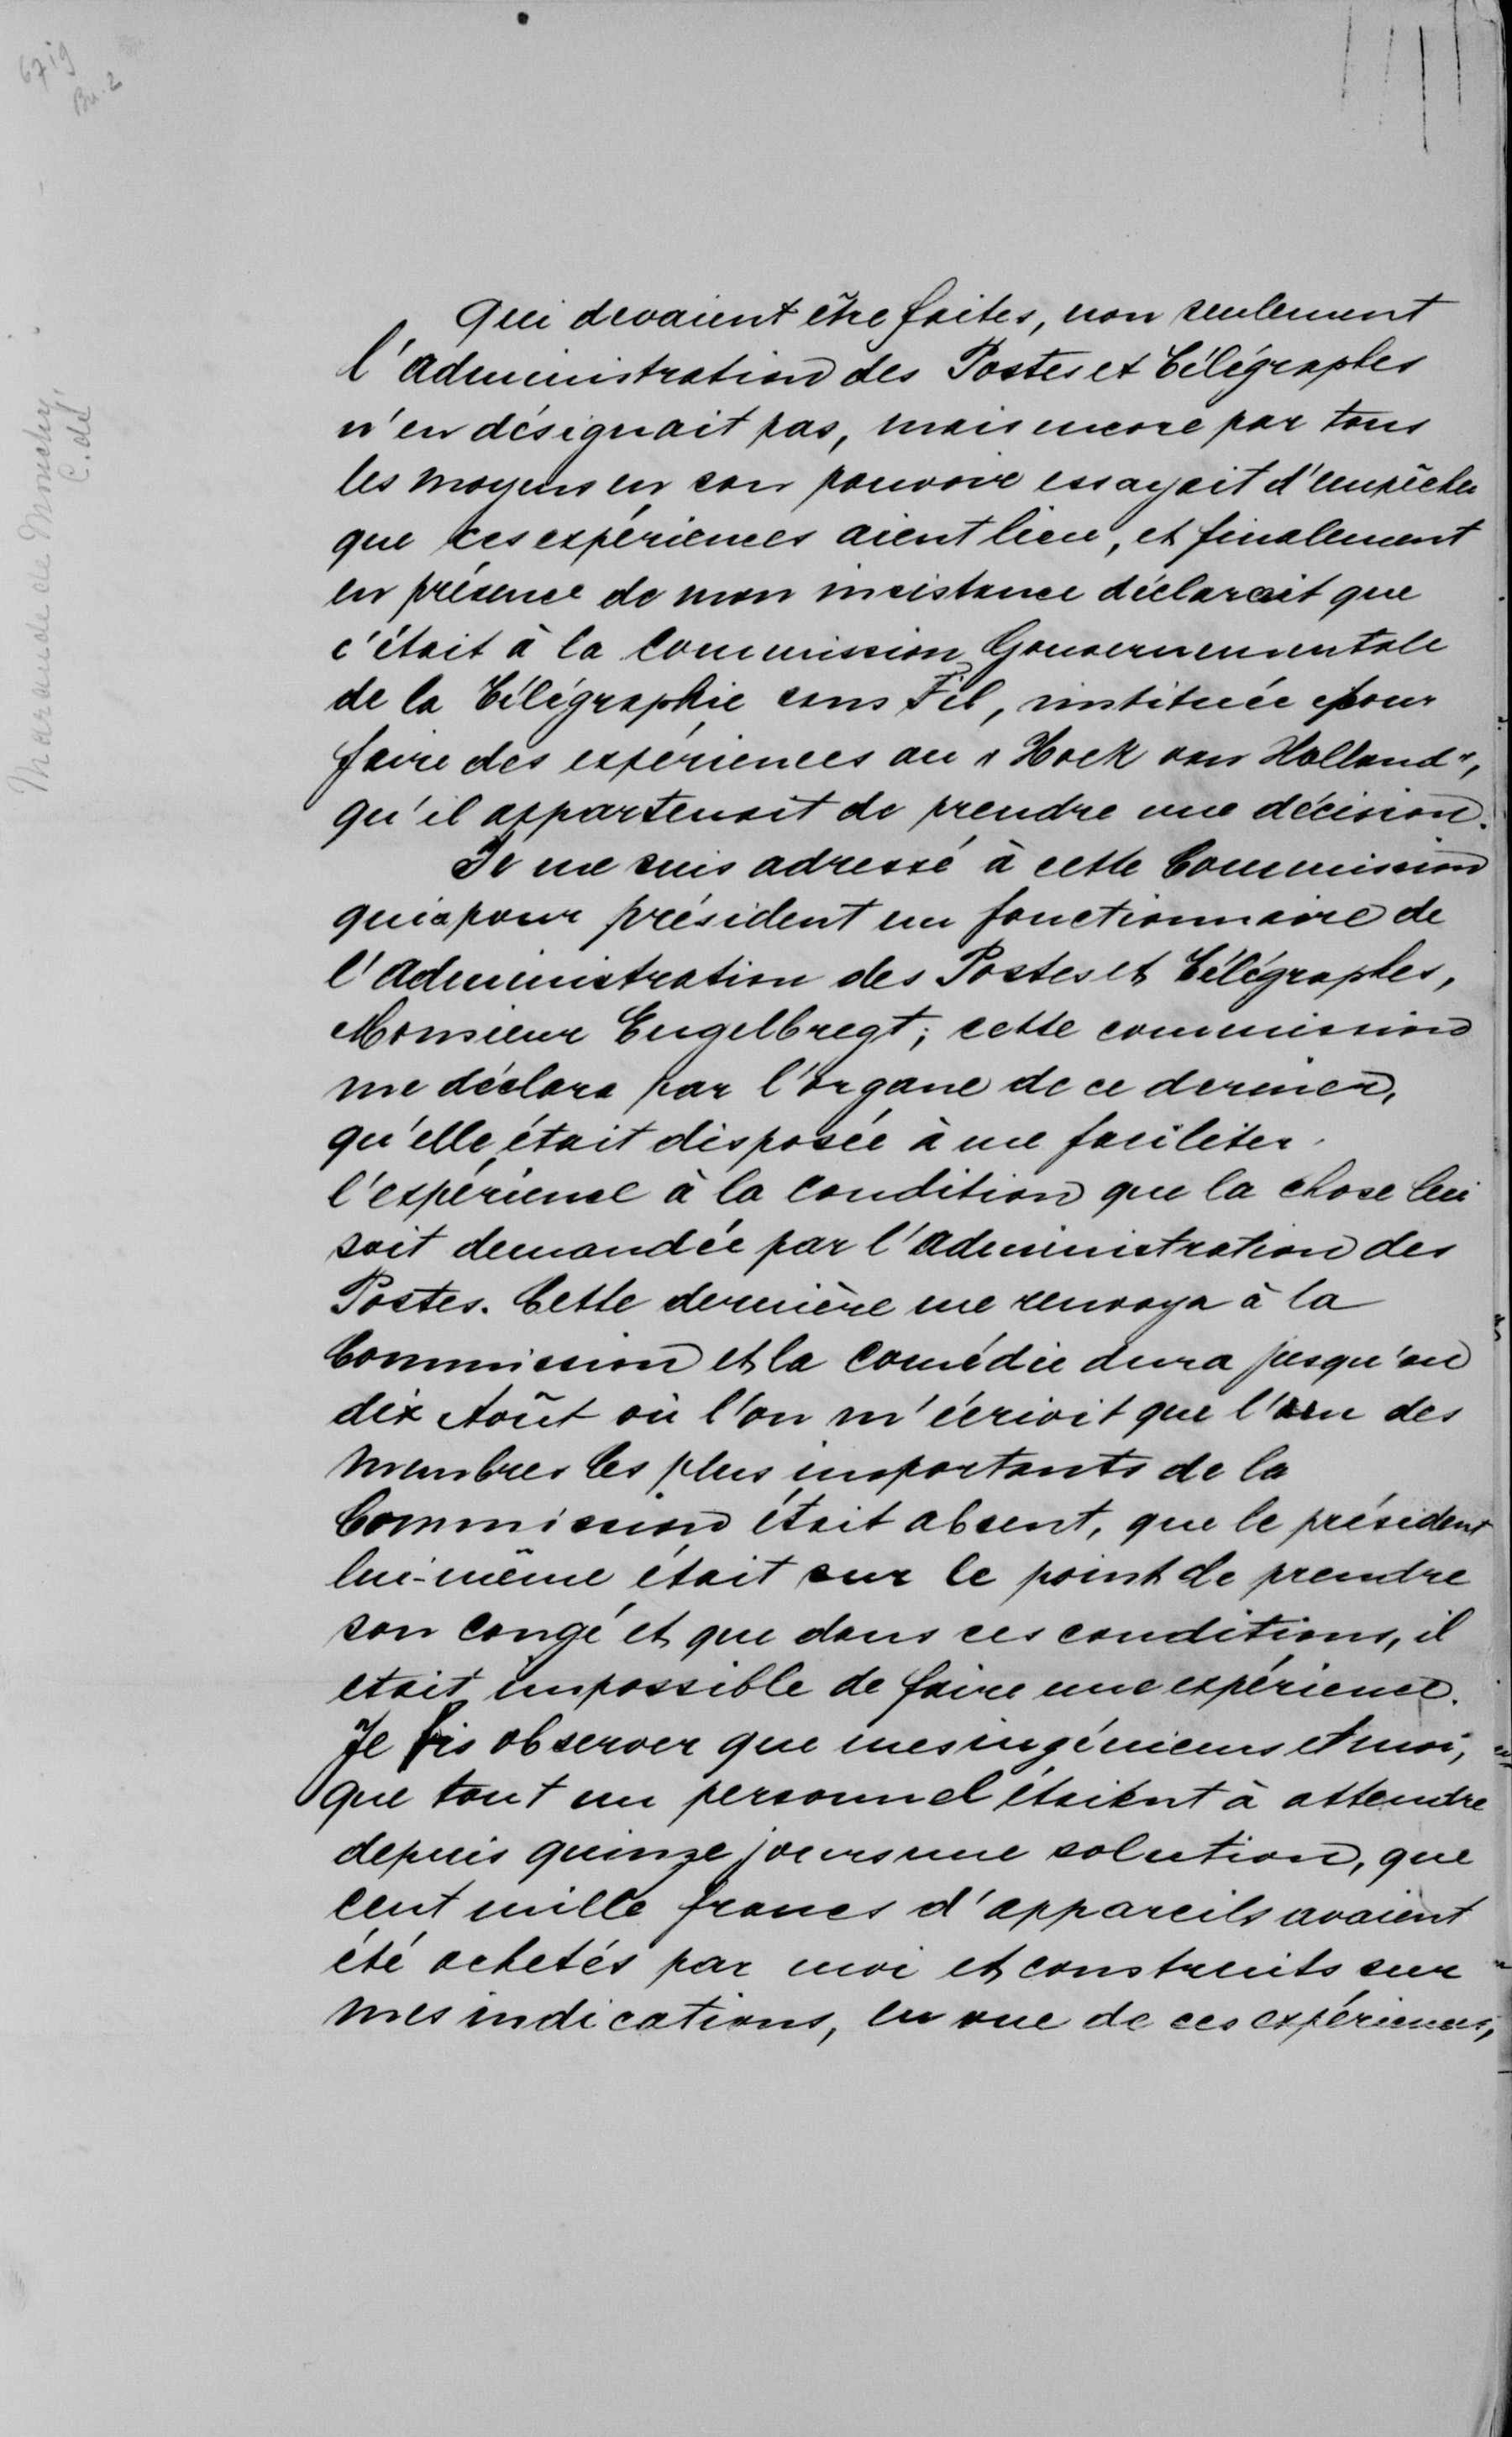 6719
Br. 2
Marande de Monchy,
C. de
Qui devaient être faites, non seulement
l'Administration des Postes et Télégraphes
n'en désignait pas, mais encore par tous
les moyens en son pouvoir essayait d'empêcher
que ces expériences aient lieu, et finalement
en présence de mon insistance déclarait que
c'était à la Commission Gouvernementale
de la Télégraphie sans Fil, instituée pour
faire des expériences au "Hoek van Holland",
qu'il appartenait de prendre une décision.
Je me suis adressé à cette Commission
qui a pour président un fonctionnaire de
l'Administration des Postes et Télégraphes,
Monsieur Engelbregt; cette commission
me déclara par l'organe de ce dernier,
qu'elle était disposée à me faciliter
l'expérience à la condition que la chose lui
soit demandée par l'Administration des
Postes. Cette dernière me renvoya à la
Commission et la comédie dura jusqu'au
dix Août où l'on m'écrivit que l'un des
membres les plus importants de la
Commission était absent, que le président
lui-même était sur le point de prendre
son congé et que dans ces conditions, il
etait impossible de faire une expérience.
Je fis observer que mes ingénieurs et moi,
que tout un personnel étaient à attendre
depuis quinze jours une solution, que
cent mille francs d'appareils avaient
été achetés par moi et construits sur
mes indications, en vue de ces expériences,